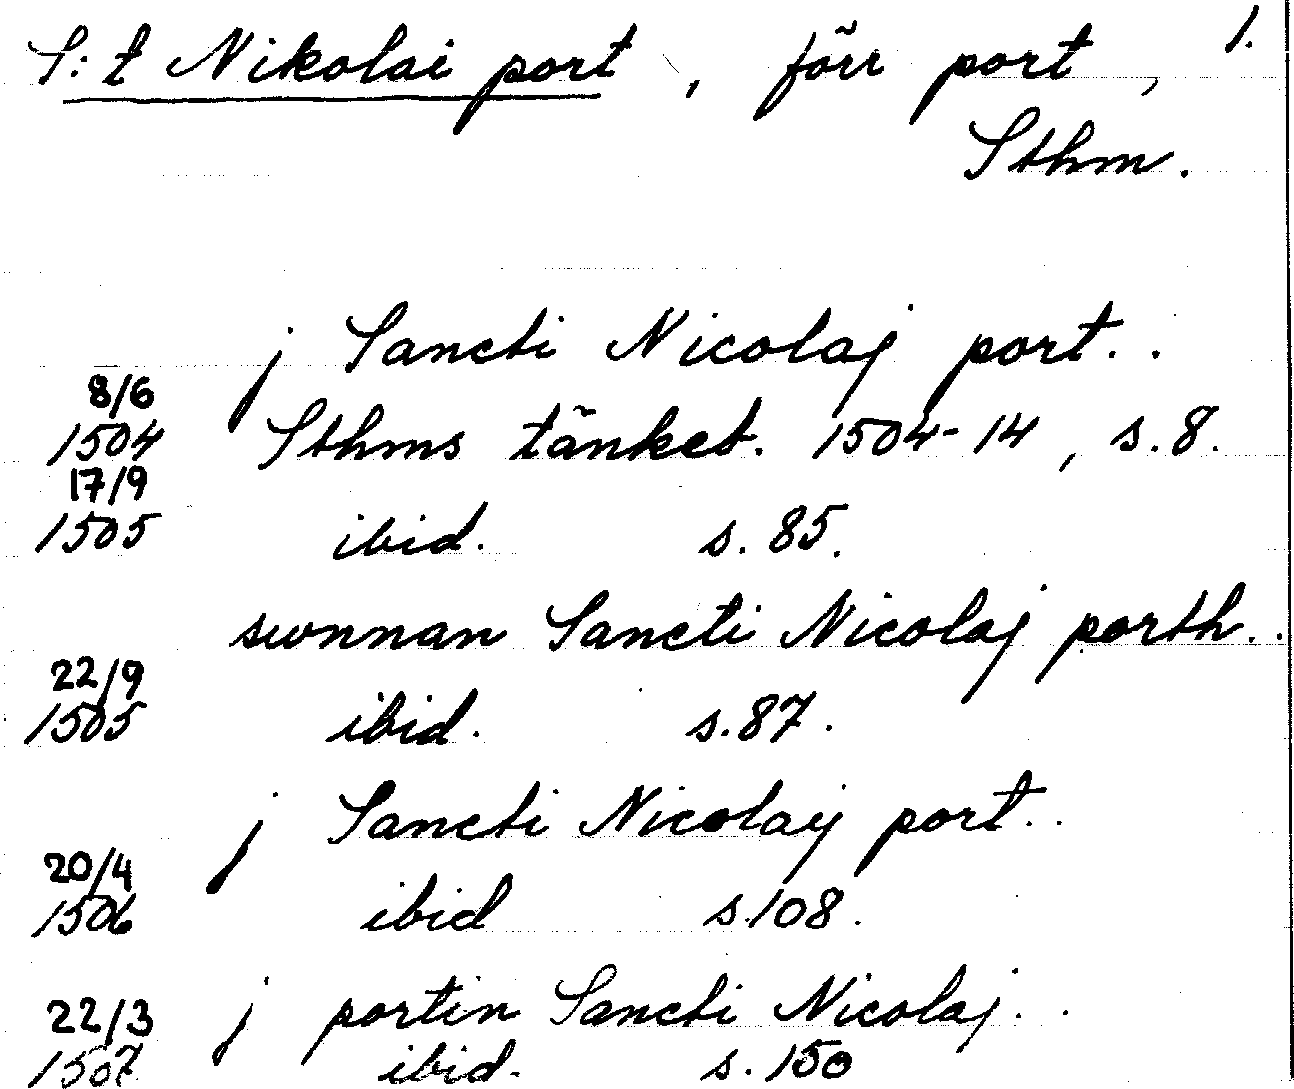 S:t Nikolai port, förr port, 1.
Sthm.
j Sancti Nicolaj port..
8/6
1504 Sthms tänkeb. 1504-14, s.8.
17/9
1505 ibid. s.85.
swnnan Sancti Nicolaj porth..
22/9
1505 ibid. s.87.
j Sancti Nicolaij port..
20/4
1506 ibid s.108.
22/3 j portin Sancti Nicolaj..
1507 ibid. s.150